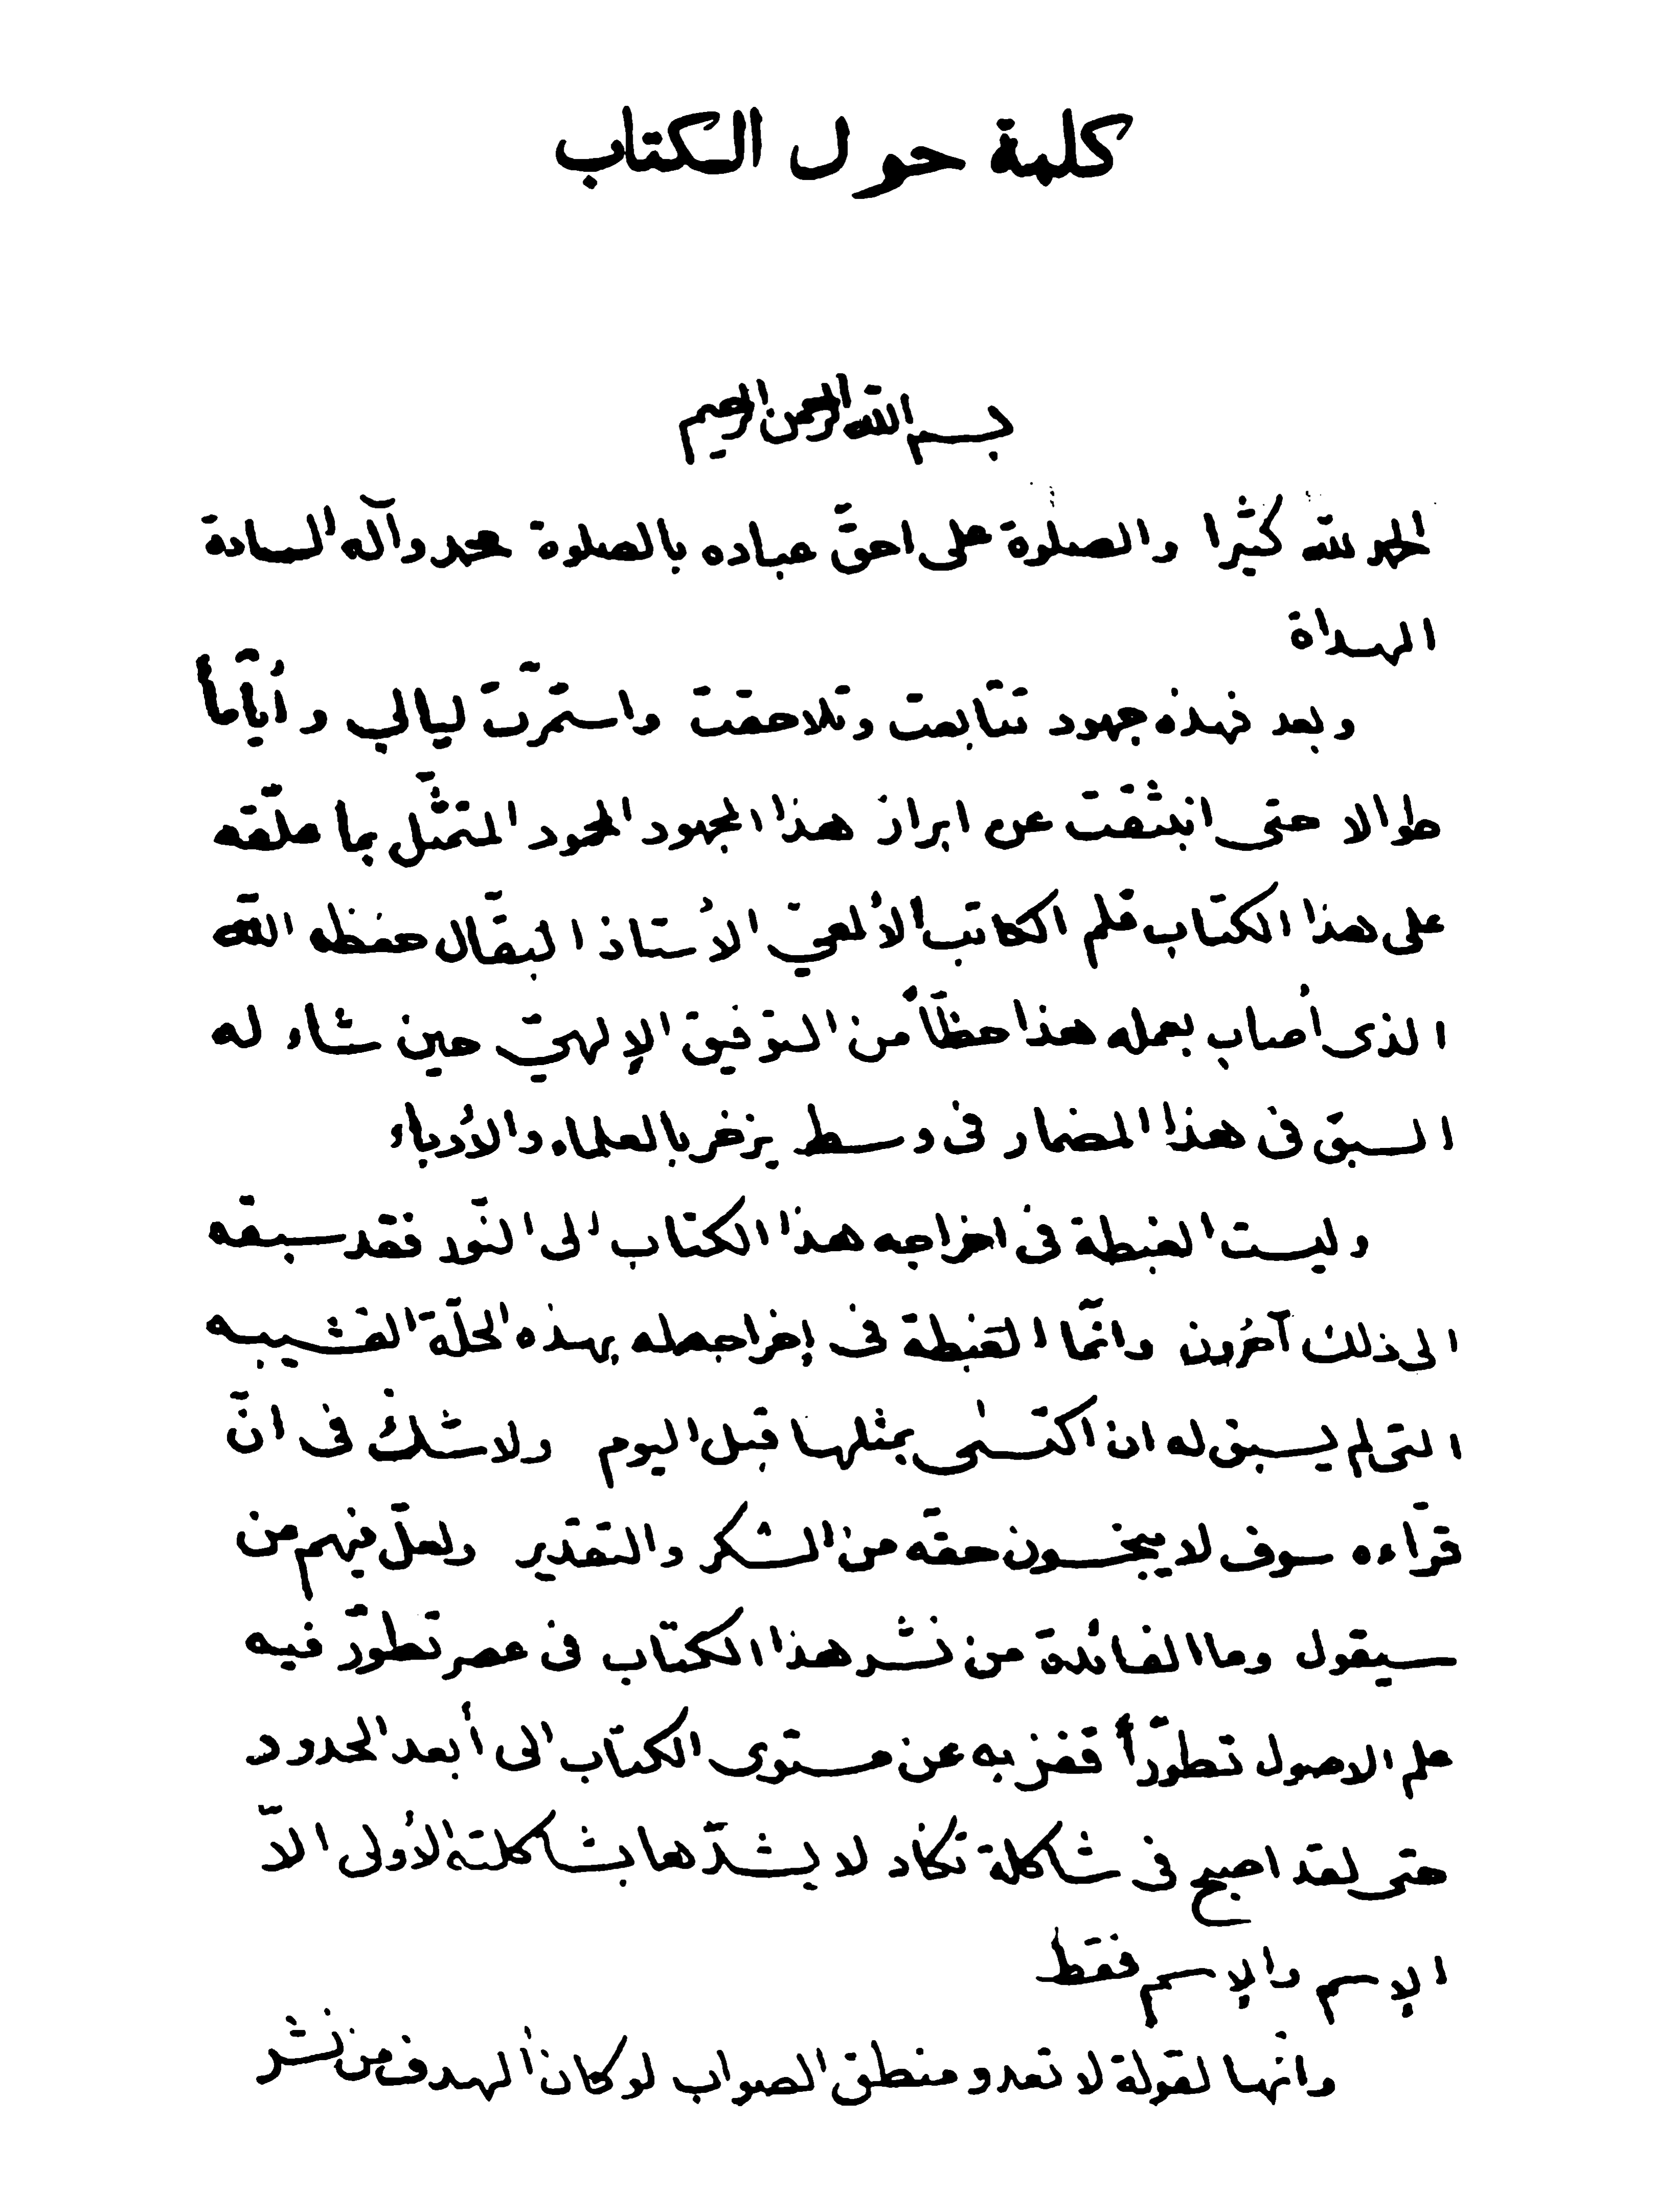 كلمة حول الكتاب
بسم الله الرحمن الرحيم
الحمد لله كثيرا والصلوة على احقّ عباده بالصلوة محمد وآله السادة
الهداة
وبعد فهذه جهود تتابعت وتلاحقت واستمرّت ليالي وأيّاماً
طوالا حتى انبثقت عن ابراز هذا المجهود المحمود المتمثّل بما علّقه
على هذا الكتاب قلم الكاتب الألمعيّ الأستاذ البقّال حفظه اللّه
الذى أصاب بعمله هذا حظّاً من التوفيق الإلهيّ حين شاء له
السبق فى هذا المضمار فى وسط يزخر بالعلماء والأدباء
وليست الغبطة في اخراجه هذا الكتاب الى النّور فقد سبقه
الى ذلك آخرون وانّما الغبطة فى إخراجه له بهذه الحلّة القشيبه
التى لم يسبق له ان اكتسى بمثلها قبل اليوم ولاشك في انّ
قرّاءه سوف لا يبخسون حقّه من الشكر والتقدير ولعلّ فيهم من
سيقول وما الفائدة من نشر هذا الكتاب فى عصر تطوّر فيه
علم الاصول تطوّراً قفز به عن مستوى الكتاب الى أبعد الحدود
حتى لقد اصبح فى شاكلة تكاد لا يشدّها بشاكلته الأولى الاّ
الإسم والإسم فقط
وانّها لقولة لا تعدو منطق الصواب لو كان الهدف من نشر